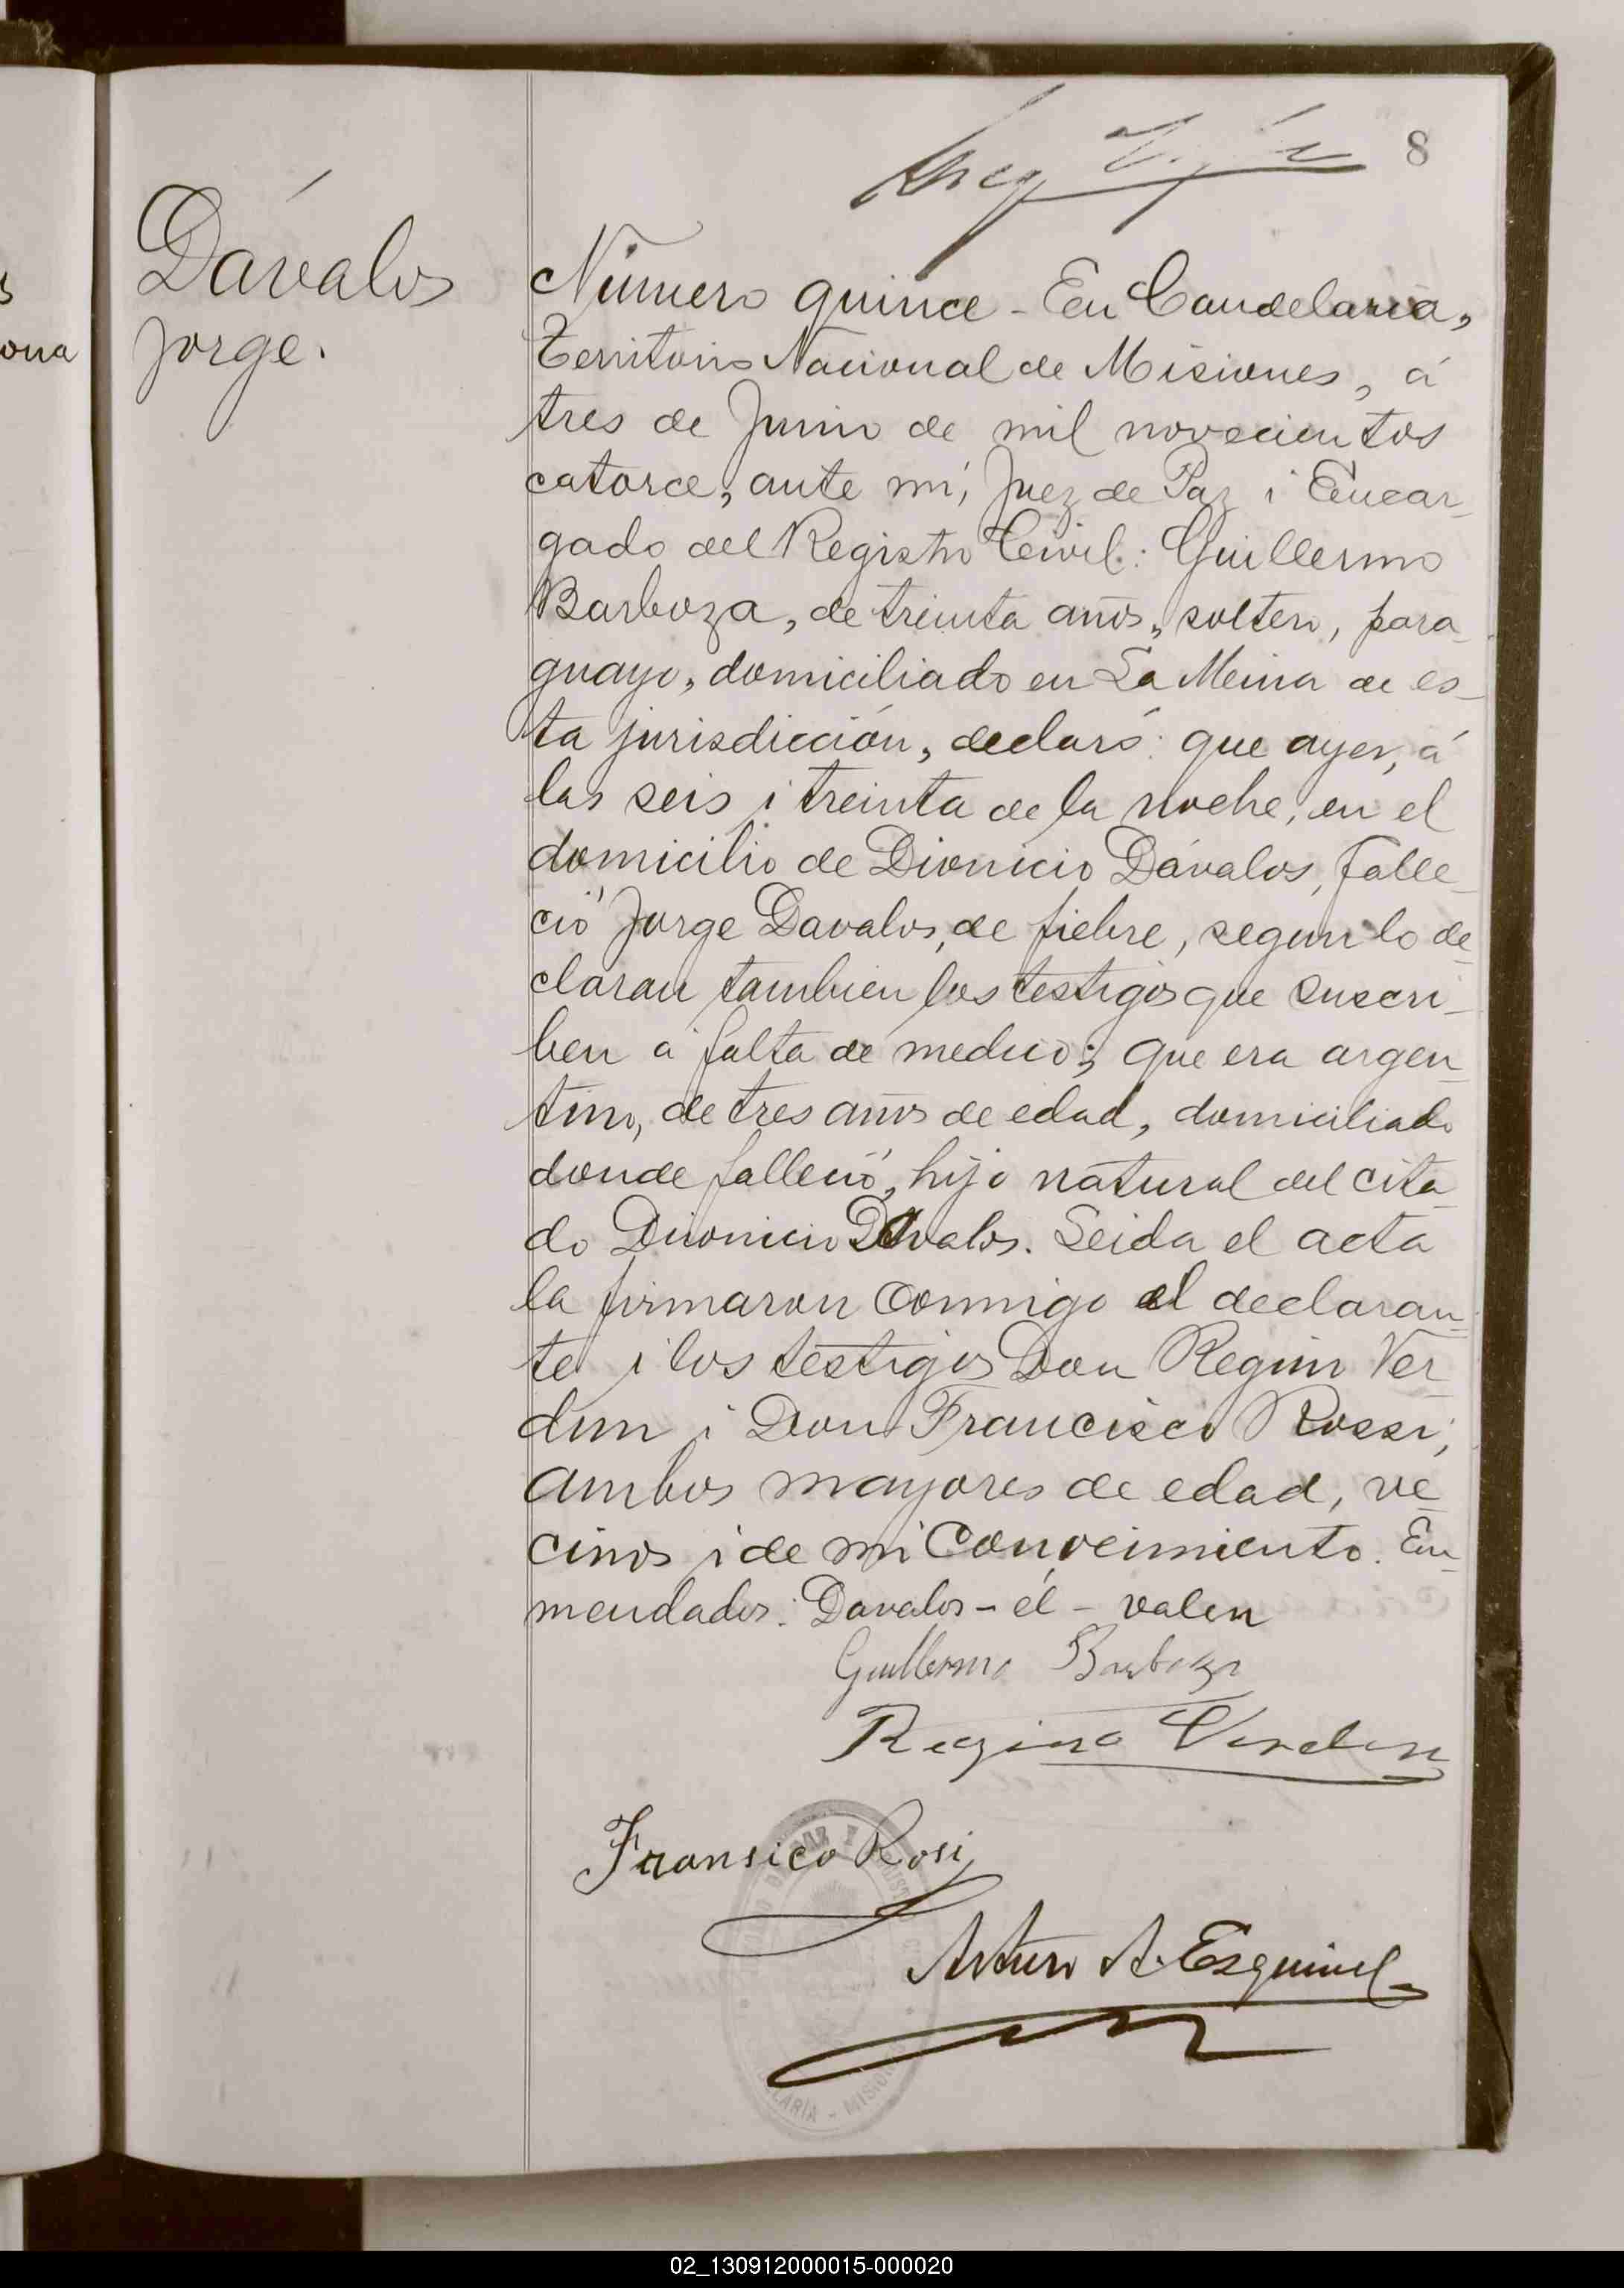 8
Dávalos
Jorge.
Número quince - En Candelaria,
Territorio Nacional de Misiones, á
tres de Junio de mil novecientos
catorce, ante mí, Juez de Paz i Encar-
gado del Registro Civil: Guillermo
Barboza, de treinta años, soltero, para-
guayo, domiciliado en La Meina de es-
ta jurisdicción, declaró: que ayer, á
las seis i treinta de la noche, en el
domicilio de Dionicio Dávalos, falle-
ció Jorge Davalos, de fiebre, segun lo de-
claran tambien los testigos que suscri-
ben á falta de medico; que era argen-
tino, de tres años de edad, domiciliado
donde falleció, hijo natural del cita-
do Dionicio Davalos. Leida el acta
la firmaron conmigo el declaran-
te i los testigos Don Regino Ver-
dun i Don Francisco Rossi,
ambos mayores de edad, ve-
cinos i de mi conocimiento. En-
mendados: Davalos - el - valen
Guillermo Barboza
Regino Verdun
Fransico Rosi
Arturo A. Esquivel
ona
02_130912000015-000020